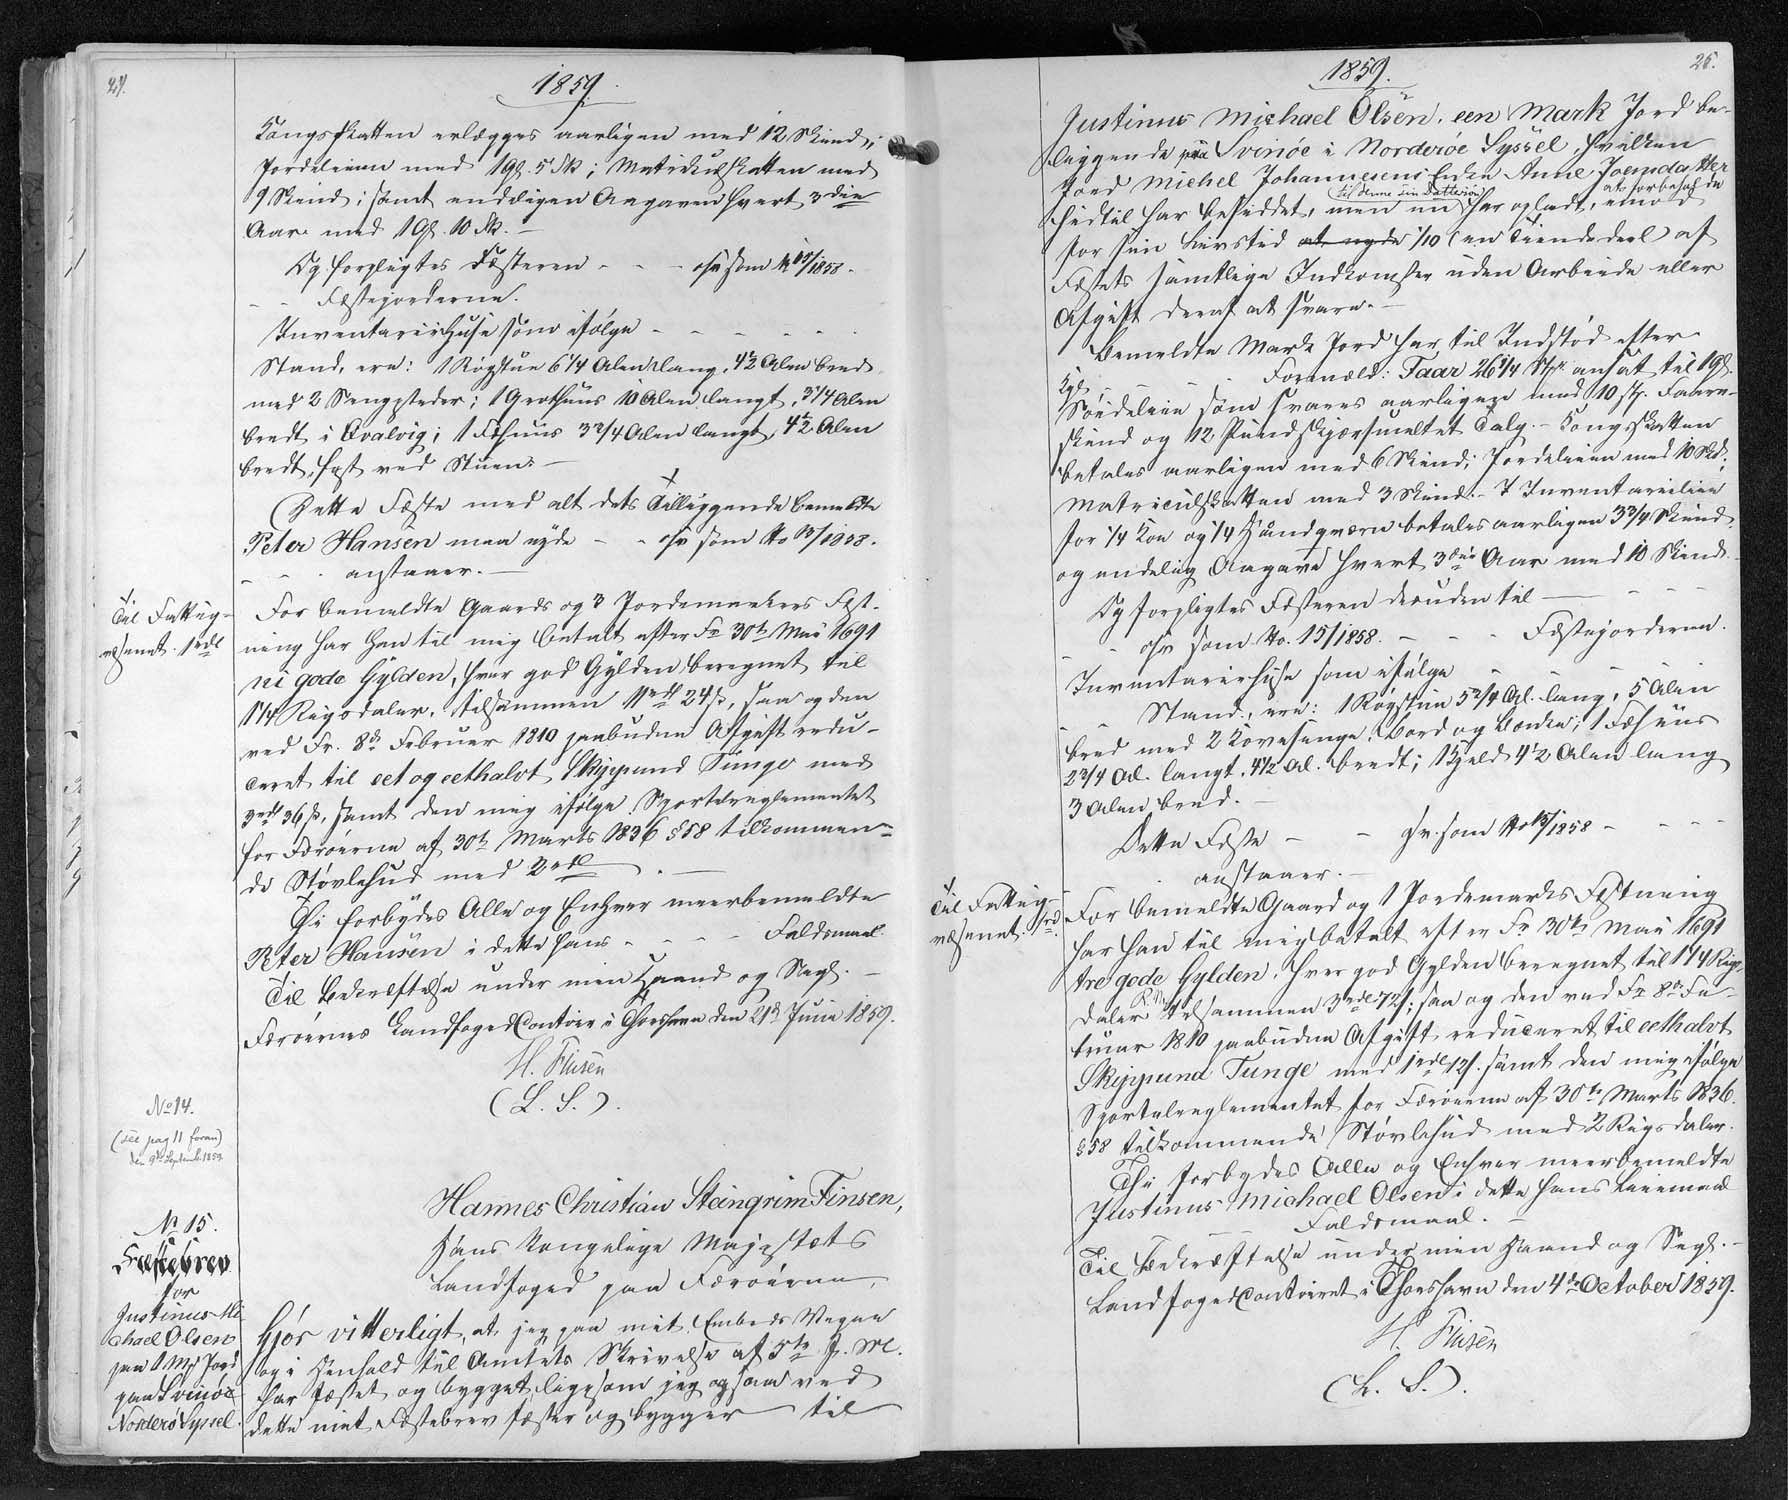 24.
1859.
Kongsskatten erlægges aarligen med 12 Skind;
Jordeleien med 1 Gl. 5 Sk; Matriculskatten med
9 Skind; samt endeligen Aagaven hvert 3die
Aar med 1 Gl. 10 Sk. —
Og forpligtes Fæsteren - - - osv som No 15/1858.
- - Fæstejorderne.
Inventarii Huse som ifølge - - - - -
Stand, ere: 1 Røgstue 6 1/4 Alen lang, 4 1/2 Alen bred
med 2 Sengesteder; 1 Grothuus 10 Alen langt, 3 1/4 Alen
bredt i Qvalvig; 1 Fæhuus 3 3/4 Alen langt, 4 1/2 Alen
bredt, fast ved Stuen. —
Dette Fæste med alt dets Tilliggende bemeldte
Peter Hansen maa nyde - - osv som No 15/1858.
- - - anstaaer. —
+
Til Fattig-
væsenet. 1 rdl
For bemeldte Gaards og 3 Jordemarkers Fæst-
ning har han til mig betalt efter Fr 30te Mai 1691
ni gode Gylden, hver god Gylden beregnet til
1 1/4 Rigsdaler, tilsammen 11 rdl 24 s, saa og den
ved Fr. 8de Februar 1810 paabudne Afgift redu-
ceret til eet og eethalvt Skippund Tunge med
3 rdl 36 s, samt den mig ifølge Sportelreglementet
for Færøerne af 30te Marts 1836 § 58 tilkommen-
de Støvlehud med 2 rdl. —
Thi forbydes Alle og Enhver meerbemeldte
Peter Hansen i dette hans - - - - Faldsmaal.
Til Bekræftelse under min Haand og Segl. —
Færøernes Landfoged Contoir i Thorshavn den 21de Junie 1859.
H. Finsen
(L. S.).
No 14.
(see pag 11 foran)
den 9de Septemb. 1859.
No 15.
Fæstebrev
for
Justinus Mi
chael Olsen
paa 1 Mk Jord
paa Svinøe
Norderø Syssel.
Hannes Christian Steingrim Finsen,
Hans Kongelige Majestæts
Landfoged paa Færøerne,
Gjør vitterligt, at jeg paa mit Embeds Vegne
og i Henhold til Amtets Skrivelse af 5te f. M.
har fæstet og bygget, ligesom jeg ogsaa ved
dette mit Fæstebrev fæster og bygger til
25.
1859.
Justinus Michael Olsen, een Mark Jord be-
liggende paa Svinøe i Norderøe Syssel, hvilken
Jord Michel Johannesens Enke Anne Joensdatter
hidtil har besiddet, men nu til denne sin Dattersøn har opladt, imod at forbeholde
for sin Livstid at nyde 1/10 (en Tiende deel) af
Fæstets samtlige Indkomster uden Arbeide eller
Afgift deraf at svare. —
Bemeldte Mark Jord har til Indstød efter
Kgl. - - - Formæld: Faar 26 1/4 Stk ansat til 1 Gl.
Søedeleie som svares aarligen med 10 st. Faare-
skind og 12 Pund skjærsmeltet Talg. — Kongsskatten
betales aarligen med 6 Skind; Jordeleien med 10 Skd;
Matriculskatten med 3 Skind. — I Inventarieleie
for 1/4 Koe og 1/4 Haandqværn betales aarligen 3 3/4 Skind
og endelig Aagave hvert 3die Aar med 10 Skind. —
Og forpligtes Fæsteren desuden til — - - -
- - osv som No. 15/1858. - - - Fæstejorderne.
Inventarierhuse som ifølge - - - -
- - Stand, ere: 1 Røgstue 5 3/4 Al. lang, 5 Alen
bred med 2 Kovesenge, Bord og Bænke; 1 Fæhuus
2 3/4 Al. langt, 4 1/2 Al. bredt; 1 Hjeld 4 1/2 Alen lang
3 Alen bred. —
Dette Fæste - - osv. som No 15/1858 - - - -
anstaaer. —
+
Til Fattig-
væsenet. 1 rd.
For bemeldte Gaard og 1 Jordemarks Fæstning
har han til mig betalt efter Fr 30te Mai 1691
tre gode Gylden, hver god Gylden beregnet til 1 1/4 Rigs-
daler tilsammen 3 rdl 72 s; saa og den ved Fr 8de Fe-
bruar 1810 paabudne Afgift reduceret til eethalvt
Skippund Tunge med 1 rdl 12 s. samt den mig ifølge
Sportelreglementet for Færøerne af 30te Marts 1836.
§ 58 tilkommende Støvlehud med 2 Rigsdaler.
Thi forbydes Alle og Enhver meerbemeldte
Justinus Michael Olsen i dette hans Leiemaal
Faldsmaal. —
Til Bekræftelse under min Haand og Segl. —
Landfoged Contoiret i Thorshavn den 4de October 1859.
H. Finsen
(L. S.).